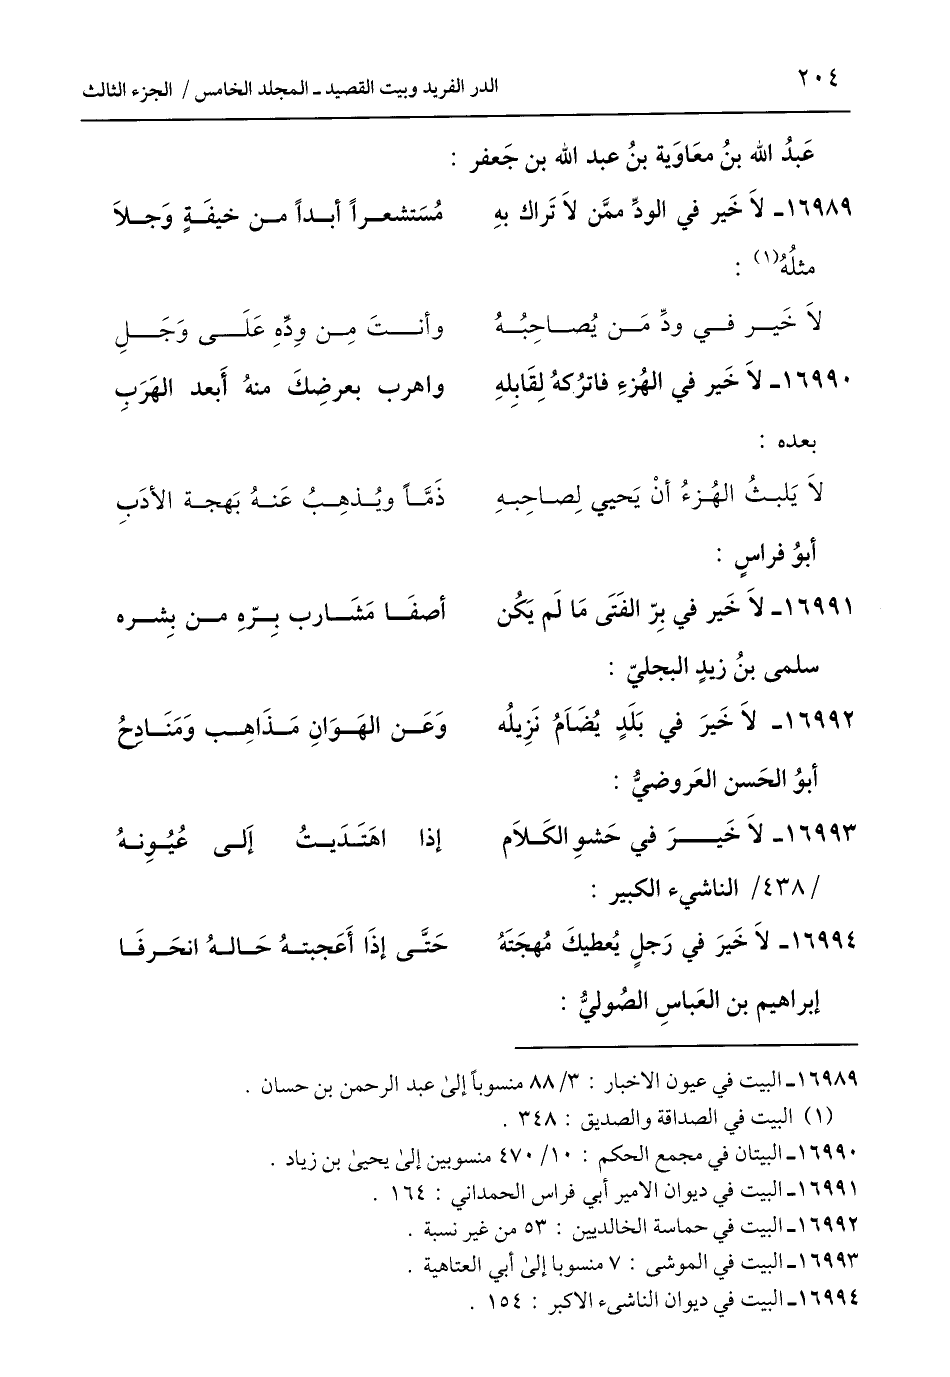 ٢٠٤ الدر الفريد وبيت القصيد ـ المجلد الخامس / الجزء الثالث
عَبدُ الله بنُ معَاوَية بنُ عبد الله بن جَعفر :
١٦٩٨٩ـ لاَ خَير في الودِّ ممَّن لاَ تَراك بهِ مُستَشعراً أبداً من خيفَةٍ وَجلاَ
مثلُهُ(١) :
لاَ خَير في ودِّ مَن يُصاحِبُهُ وأنتَ مِن ودِّهِ عَلَى وَجَلِ
١٦٩٩٠ـ لاَ خَير في الهُزءِ فاترُكهُ لِقَابِلهِ واهرب بعرضِكَ منهُ أَبعد الهَرَبِ
بعده :
لاَ يَلبثُ الهُزءُ أنْ يَحيي لِصاحِبهِ ذَمَّاً ويُذهِبُ عَنهُ بَهجة الأدَبِ
أبوُ فراسٍ :
١٦٩٩١ـ لاَ خَير في بِرّ الفَتَى مَا لَم يَكُن أصفَا مَشَارب بِرّهِ من بِشره
سلمى بنُ زيدٍ البجليّ :
١٦٩٩٢ـ لاَ خَيرَ في بَلَدٍ يُضَامُ نَزِيلُه وَعَن الهَوَانِ مَذَاهِب وَمَنَادِحُ
أبوُ الحَسن العَروضيُّ :
١٦٩٩٣ـ لاَ خَيرَ في حَشوِ الكَلاَم إذا اهتَدَيتُ إلَى عُيُونِهُ
/٤٣٨/ الناشيء الكبير :
١٦٩٩٤ـ لاَ خَيرَ في رَجلٍ يُعطيكَ مُهجَتَهُ حَتَّى إذَا أَعجبتهُ حَالهُ انحَرفَا
إبراهيم بن العَباسِ الصُوليُّ :
١٦٩٨٩ـ البيت في عيون الاخبار : ٣/ ٨٨ منسوباً إلىٰ عبد الرحمن بن حسان .
(١) البيت في الصداقة والصديق : ٣٤٨ .
١٦٩٩٠ـ البيتان في مجمع الحكم : ١٠/ ٤٧٠ منسوبين إلىٰ يحيىٰ بن زياد .
١٦٩٩١ـ البيت في ديوان الامير أبي فراس الحمداني : ١٦٤ .
١٦٩٩٢ـ البيت في حماسة الخالديين : ٥٣ من غير نسبة .
١٦٩٩٣ـ البيت في الموشى : ٧ منسوبا إلىٰ أبي العتاهية .
١٦٩٩٤ـ البيت في ديوان الناشىء الاكبر : ١٥٤ .